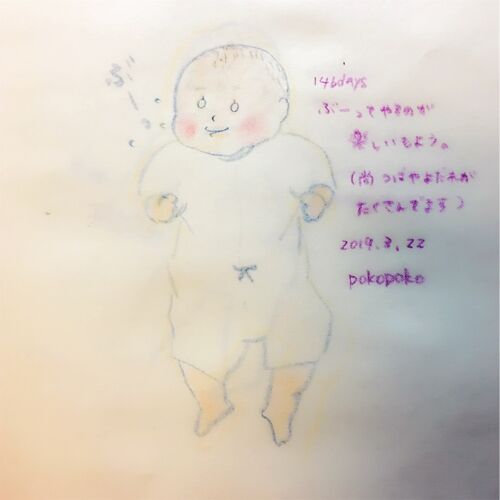 ぶー
146days
ぶーってやるのが
楽しいもよう。
(尚)つばやよだれが
たくさんでます)
2019.3.22
pokopoko